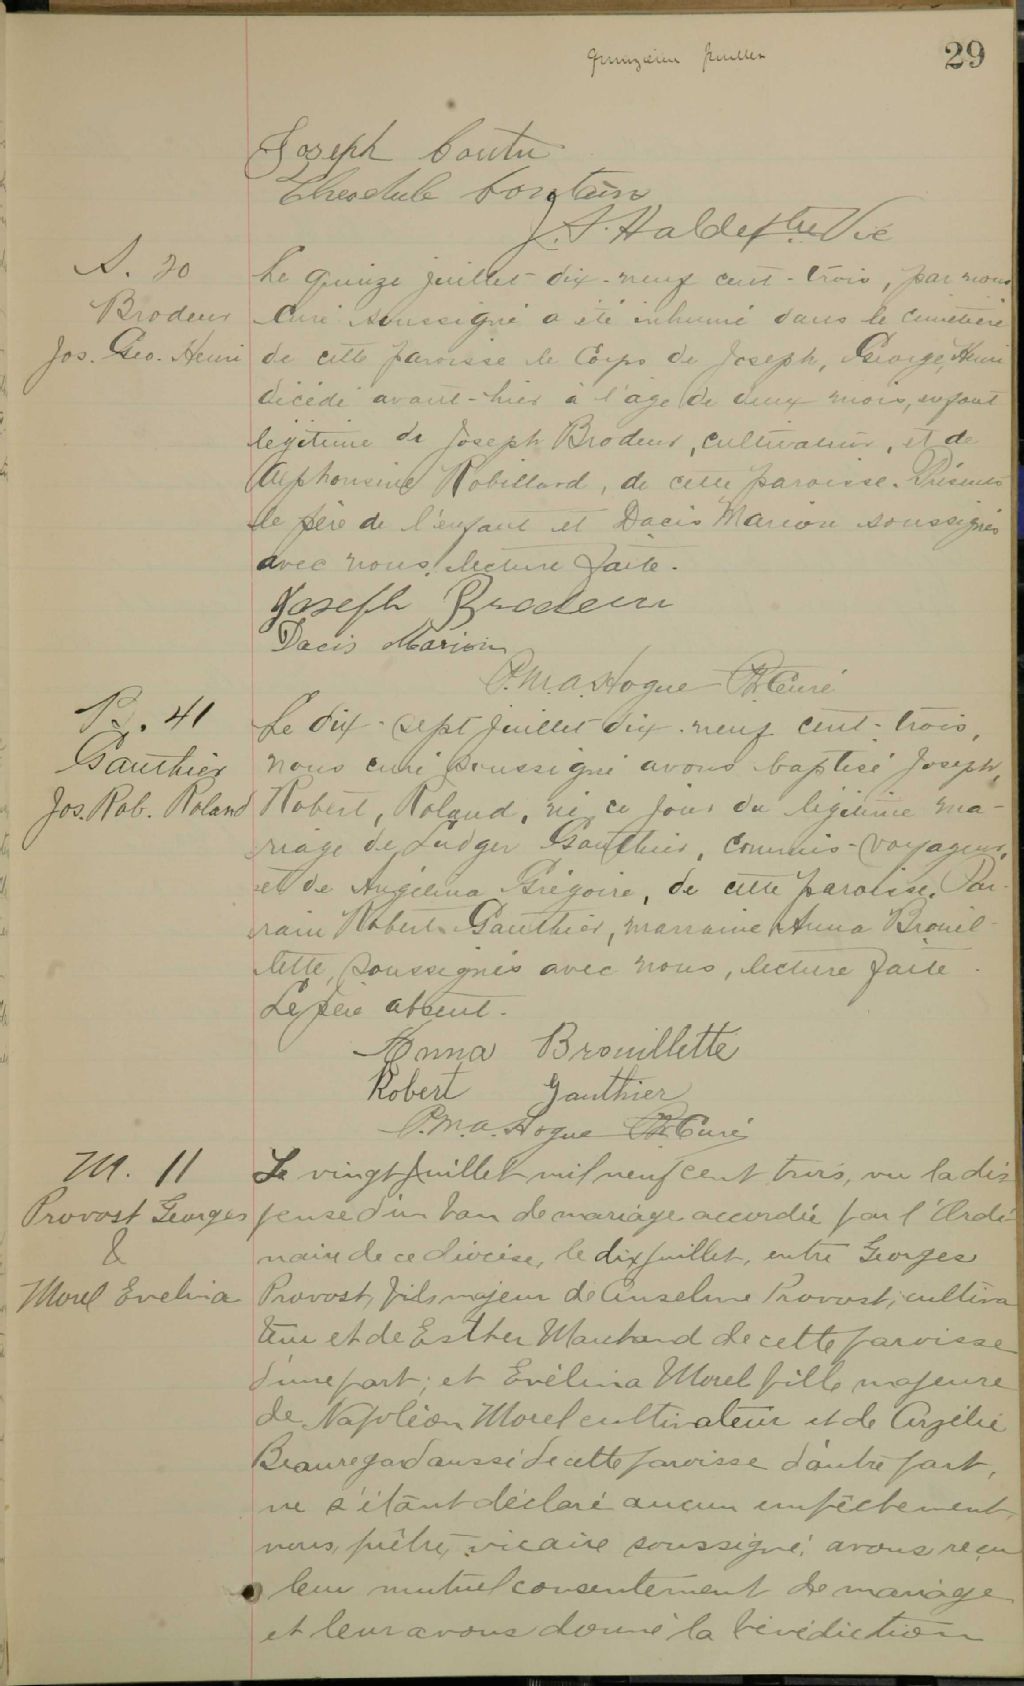 quinzième feuillet
29
Joseph Coutu
Théodule
J. A. Halde ptre Vic
S. 20
Brodeur
Jos. Geo. Henri
Le quinze juillet dix-neuf cent-trois, par nous
Curé soussigné a été inhumé dans le cimetière
de cette paroisse le Corps de Joseph, George, Henri
décédé avant-hier à l'âge de deux mois, enfant
légitime de Joseph Brodeur, cultivateur, et de
Alphonsine Robillard, de cette paroisse. Présents
le père de l'enfant et Dacis Marion soussignés
avec nous, lecture faite.
Joseph Brodeur
Dacis Marion
P.M.A. Hogue Ptre Curé
B. 41
Gauthier
Jos. Rob. Roland
Le dix-sept juillet dix-neuf cent-trois,
nous curé soussigné avons baptisé Joseph,
Robert, Roland, né ce jour du légitime ma-
riage de Ludger Gauthier, commis-voyageur,
et de Angélina Grégoire, de cette paroisse. Par-
rain Robert Gauthier, marraine Anna Brouil-
lette, soussignés avec nous, lecture faite.
Le père absent.
Anna Brouillette
Robert Gauthier
P.M.A. Hogue Ptre Curé
M. 11
Provost Georges
&
Morel Evelina
Le vingt Juillet mil neuf cent trois, vu la dis
pense d'un ban de mariage accordée par l'Ordi
naire de ce diocèse, le dix juillet, entre Georges
Provost, fils majeur de Anselme Provost, cultiva
teur et de Esther Marchand de cette paroisse
d'une part; et Evélina Morel fille majeure
de Napoléon Morel cultivateur et de Arzélie
Beauregard aussi de cette paroisse d'autre part,
ne s'étant déclaré aucun empêchement,
nous, prêtre, vicaire soussigné, avons reçu
leur mutuel consentement de mariage
et leur avons donné la bénédiction